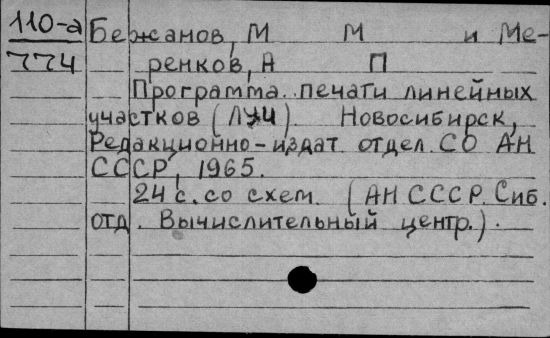 110-а Бежанов, М М и Ме-
774 ренков, А П
Программа печати линейных
участков (ЛУЧ) Новосибирск,
Редакционно-издат отдел СО АН
СССР, 1965.
24 с. со схем. (АН СССР. Сиб.
отд. Вычислительный центр.).